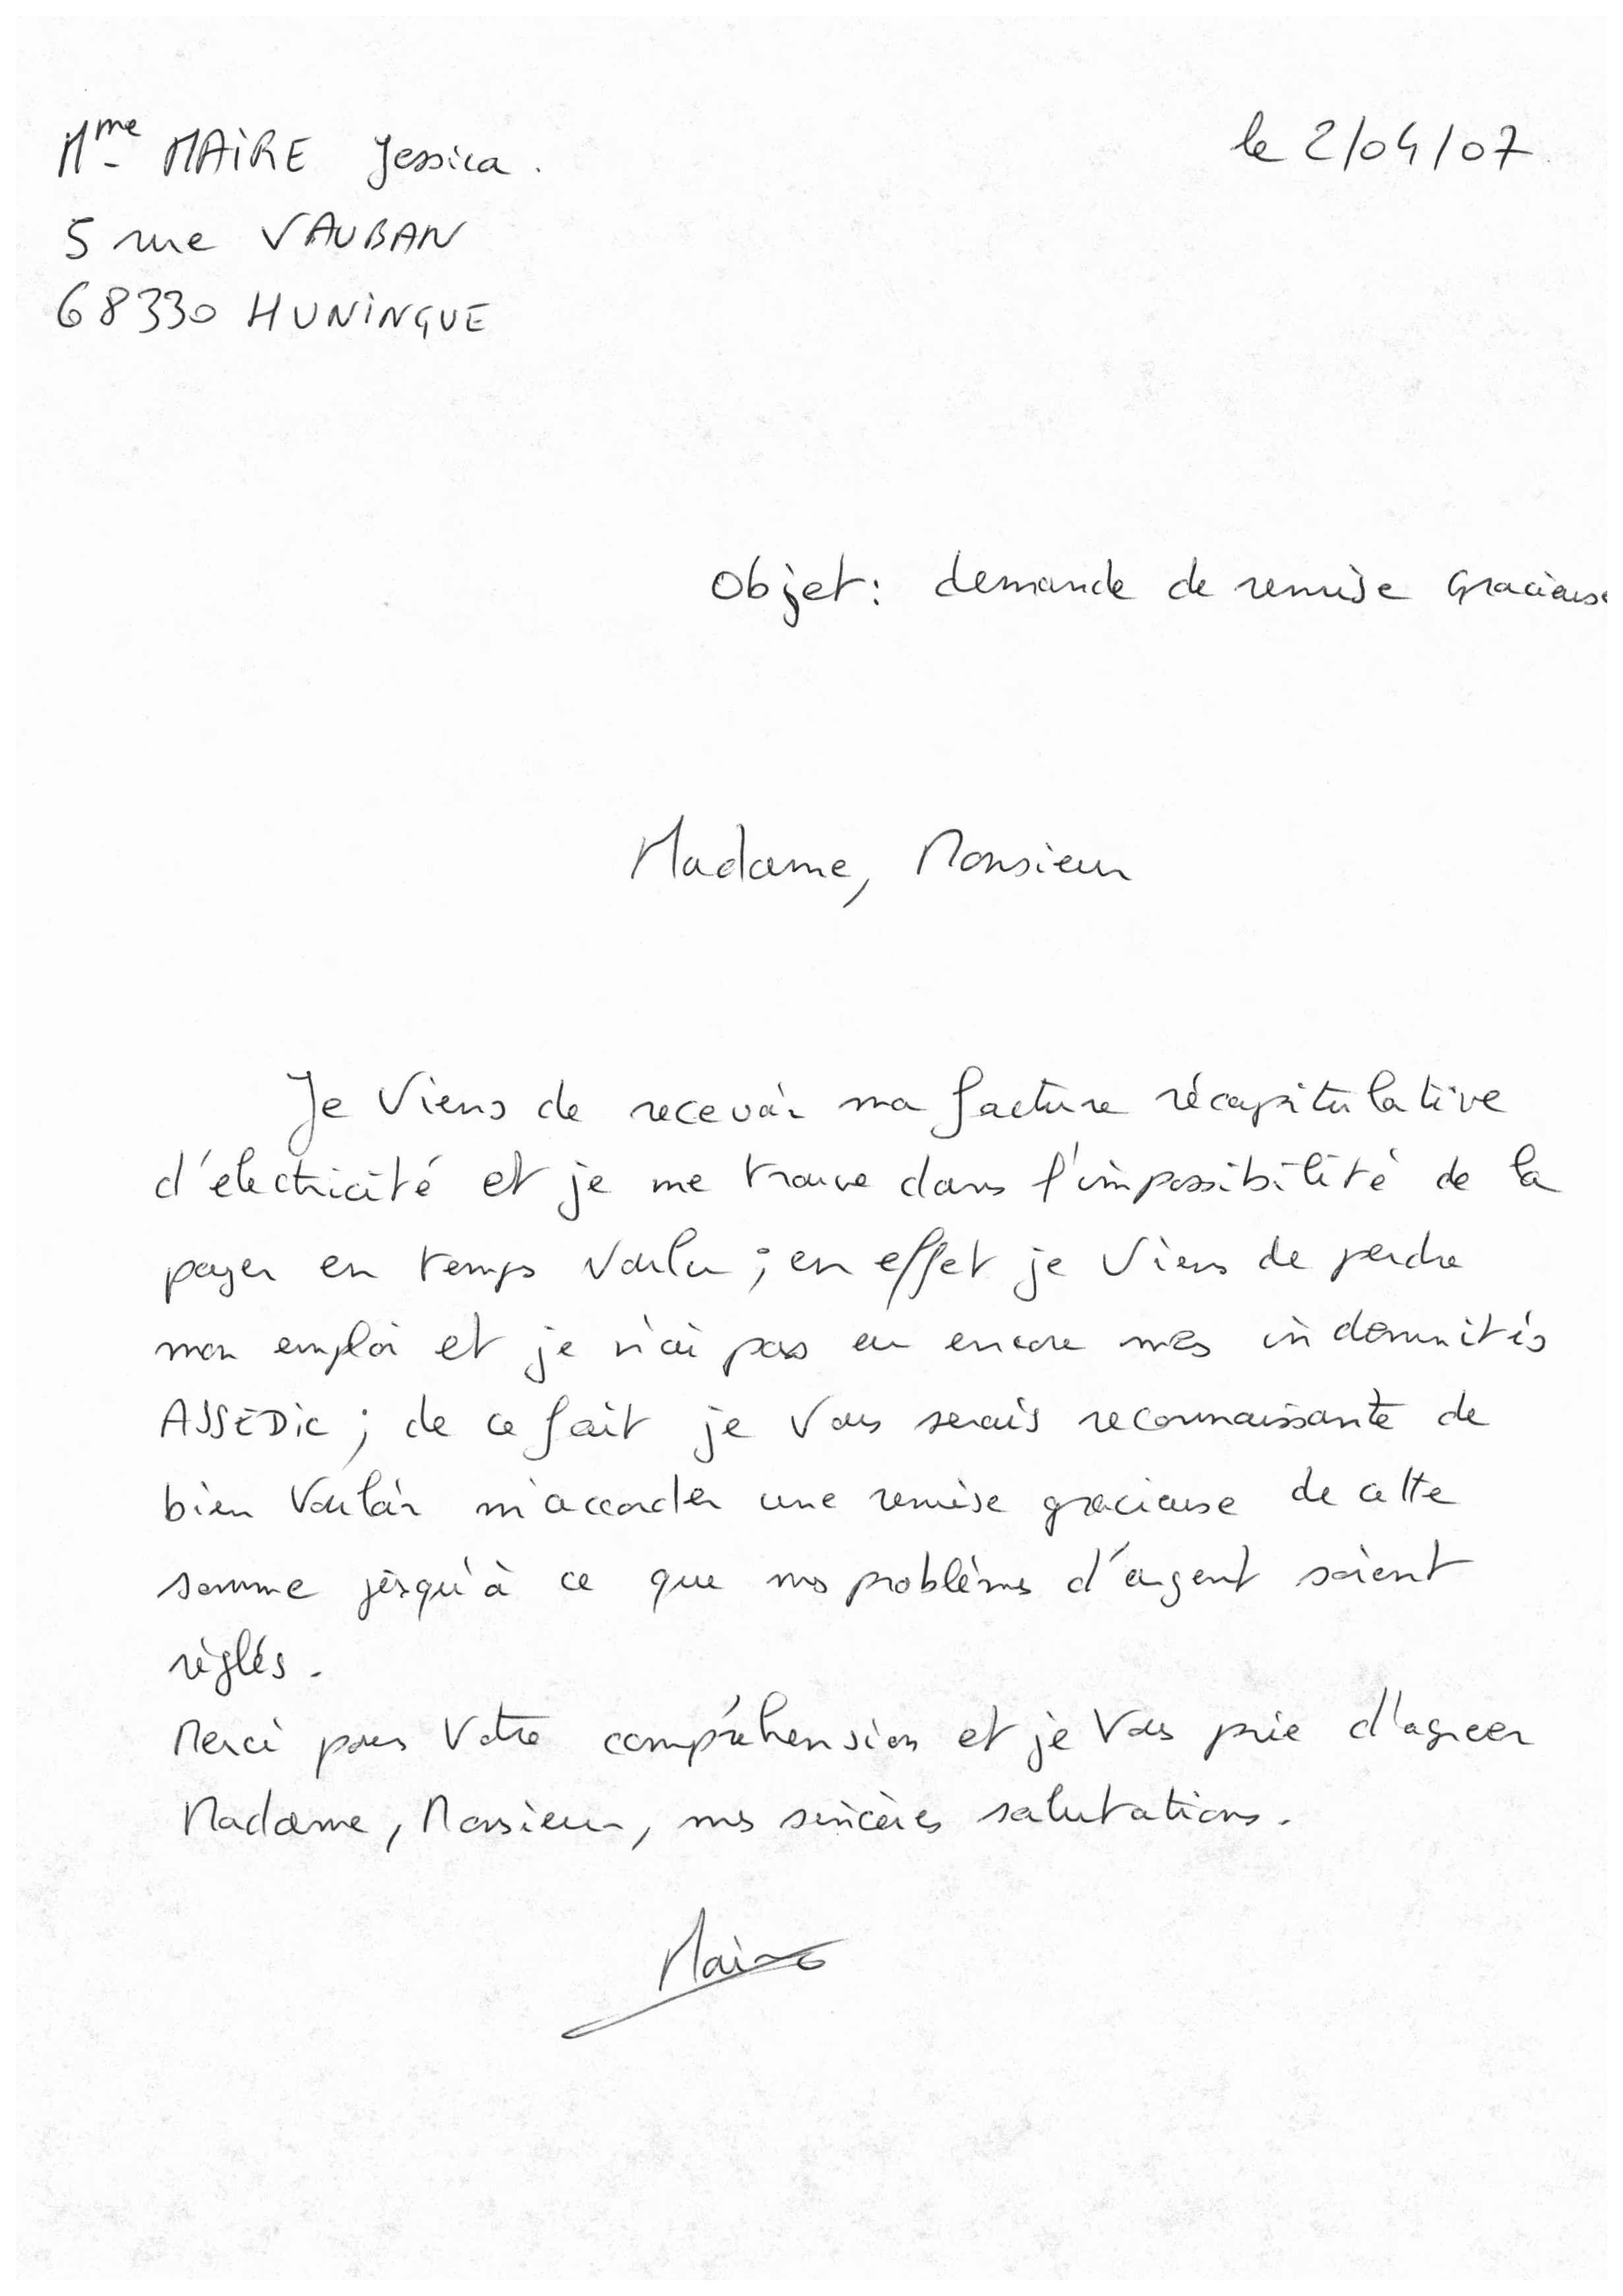 Mme MAIRE Jessica.
le 2/04/07
5 rue VAUBAN
68330 HUNINGUE
Objet: demande de remise Gracieuse
Madame, Monsieur
Je viens de recevoir ma facture récapitulative
d'électricité et je me trouve dans l'impossibilité de la
payer en temps voulu ; en effet je viens de perdre
mon emploi et je n'ai pas eu encore mes indemnités
ASSEDIC ; de ce fait je vous serais reconnaissante de
bien vouloir m'accorder une remise gracieuse de cette
somme jusqu'à ce que mes problèmes d'argent soient
réglés.
Merci pour votre compréhension et je vous prie d'agréer
Madame, Monsieur, mes sincères salutations.
Maire